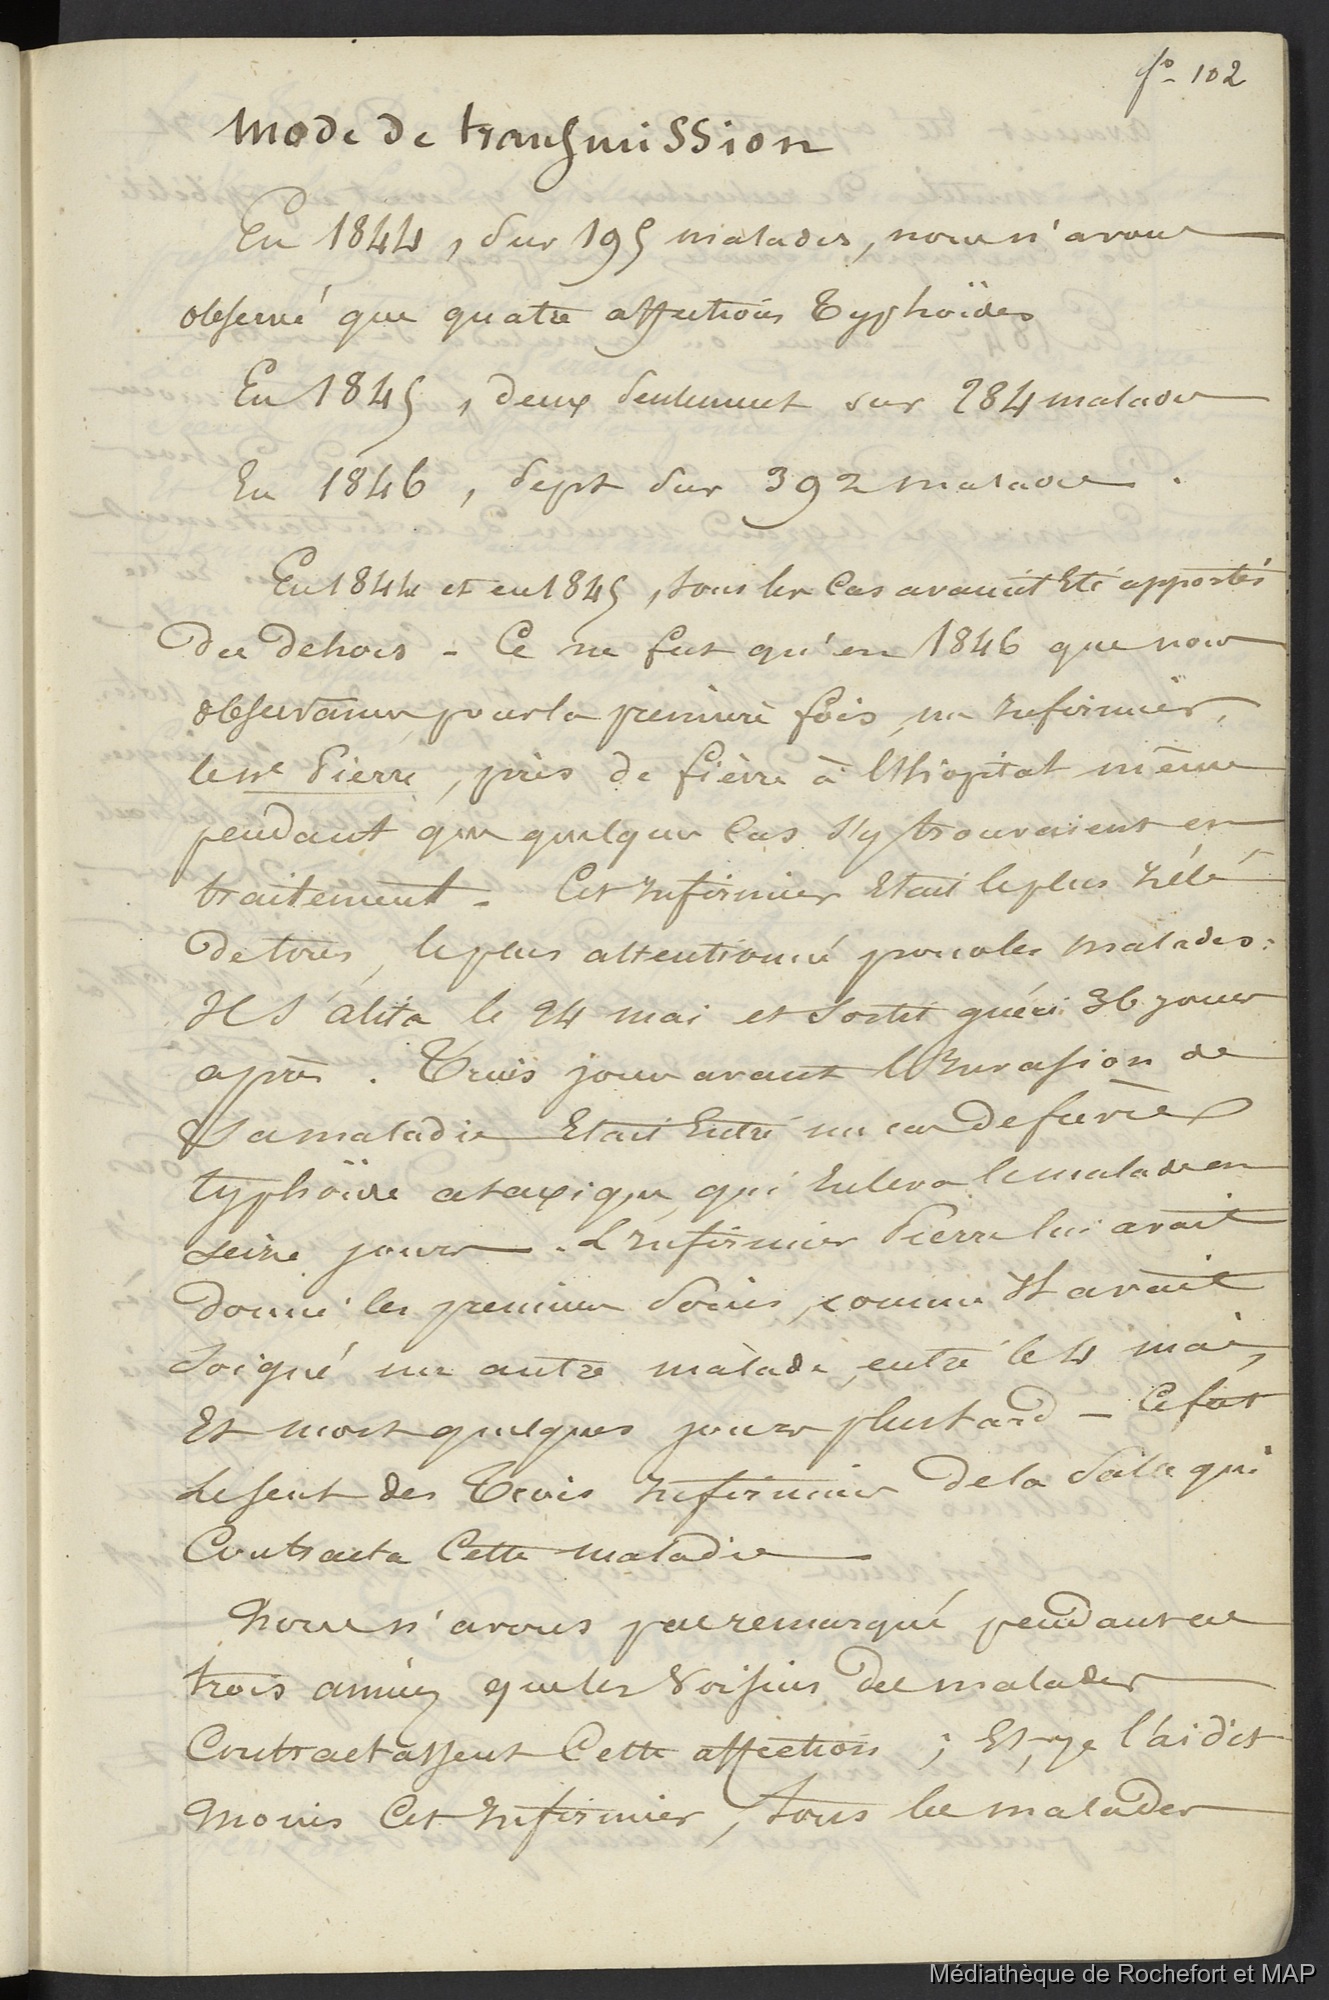 fo. 102
Mode de transmission
En 1844, sur 195 malades, nous n'avons
observé que quatre affections Typhoïdes
En 1845, deux seulement sur 284 malades
En 1846, sept sur 392 malades.
En 1844 et en 1845, tous les cas avaient été apportés
du dehors - Ce ne fut qu'en 1846 que nous
observames, pour la première fois, un infirmier,
le né Pierre, pris de fièvre à l'hôpital même
pendant que quelques cas s'y trouvaient en
traitement - Cet infirmier était le plus zélé
de tous, le plus attentionné pour les malades:
Il s'alita le 24 mai et sortit guéri 36 jours
après. Trois jours avant l'invasion de
sa maladie était entré un cas de fièvre
typhoïde ataxique, qui enleva le malade en
seize jours. L'infirmier Pierre lui avait
donné les premiers soins, comme il avait
soigné un autre malade, entré le 4 mai,
et mort quelques jours plus tard - Ce fut
le seul des Trois infirmiers de la Salle qui
Contracta Cette maladie
Nous n'avons pas remarqué pendant ces
trois années que les Voisins des malades
Contractassent Cette affection ; Et, je l'ai dit
Moins Cet infirmier, tous les malades
Médiathèque de Rochefort et MAP